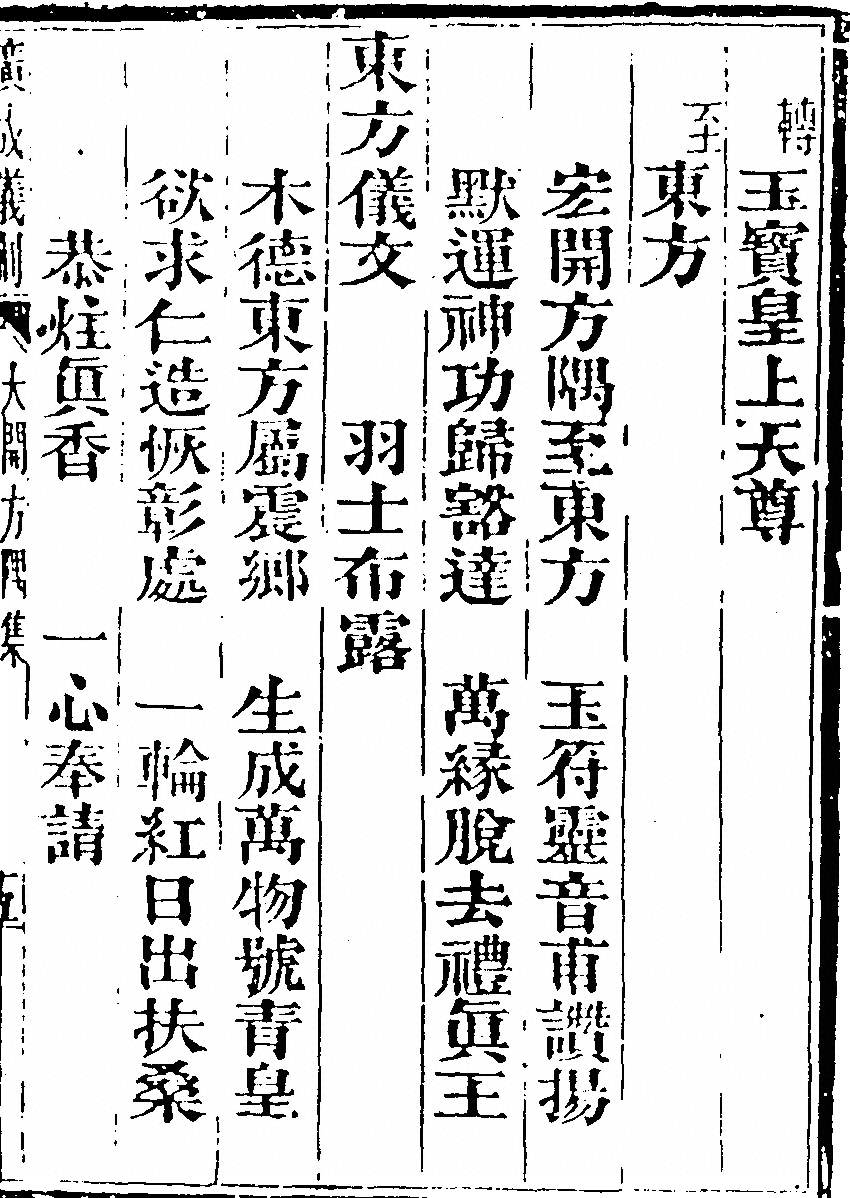 轉
玉寶皇上天尊
至
東方
宏開方隅至東方　玉符靈音甫讚揚
默運神功歸豁達　萬緣脫去禮眞王
東方儀文　羽士布露
木德東方屬震鄉　生成萬物號青皇
欲求仁造恢彰處　一輪紅日出扶桑
恭炷眞香　一心奉請
廣成儀制　大開方隅集　五